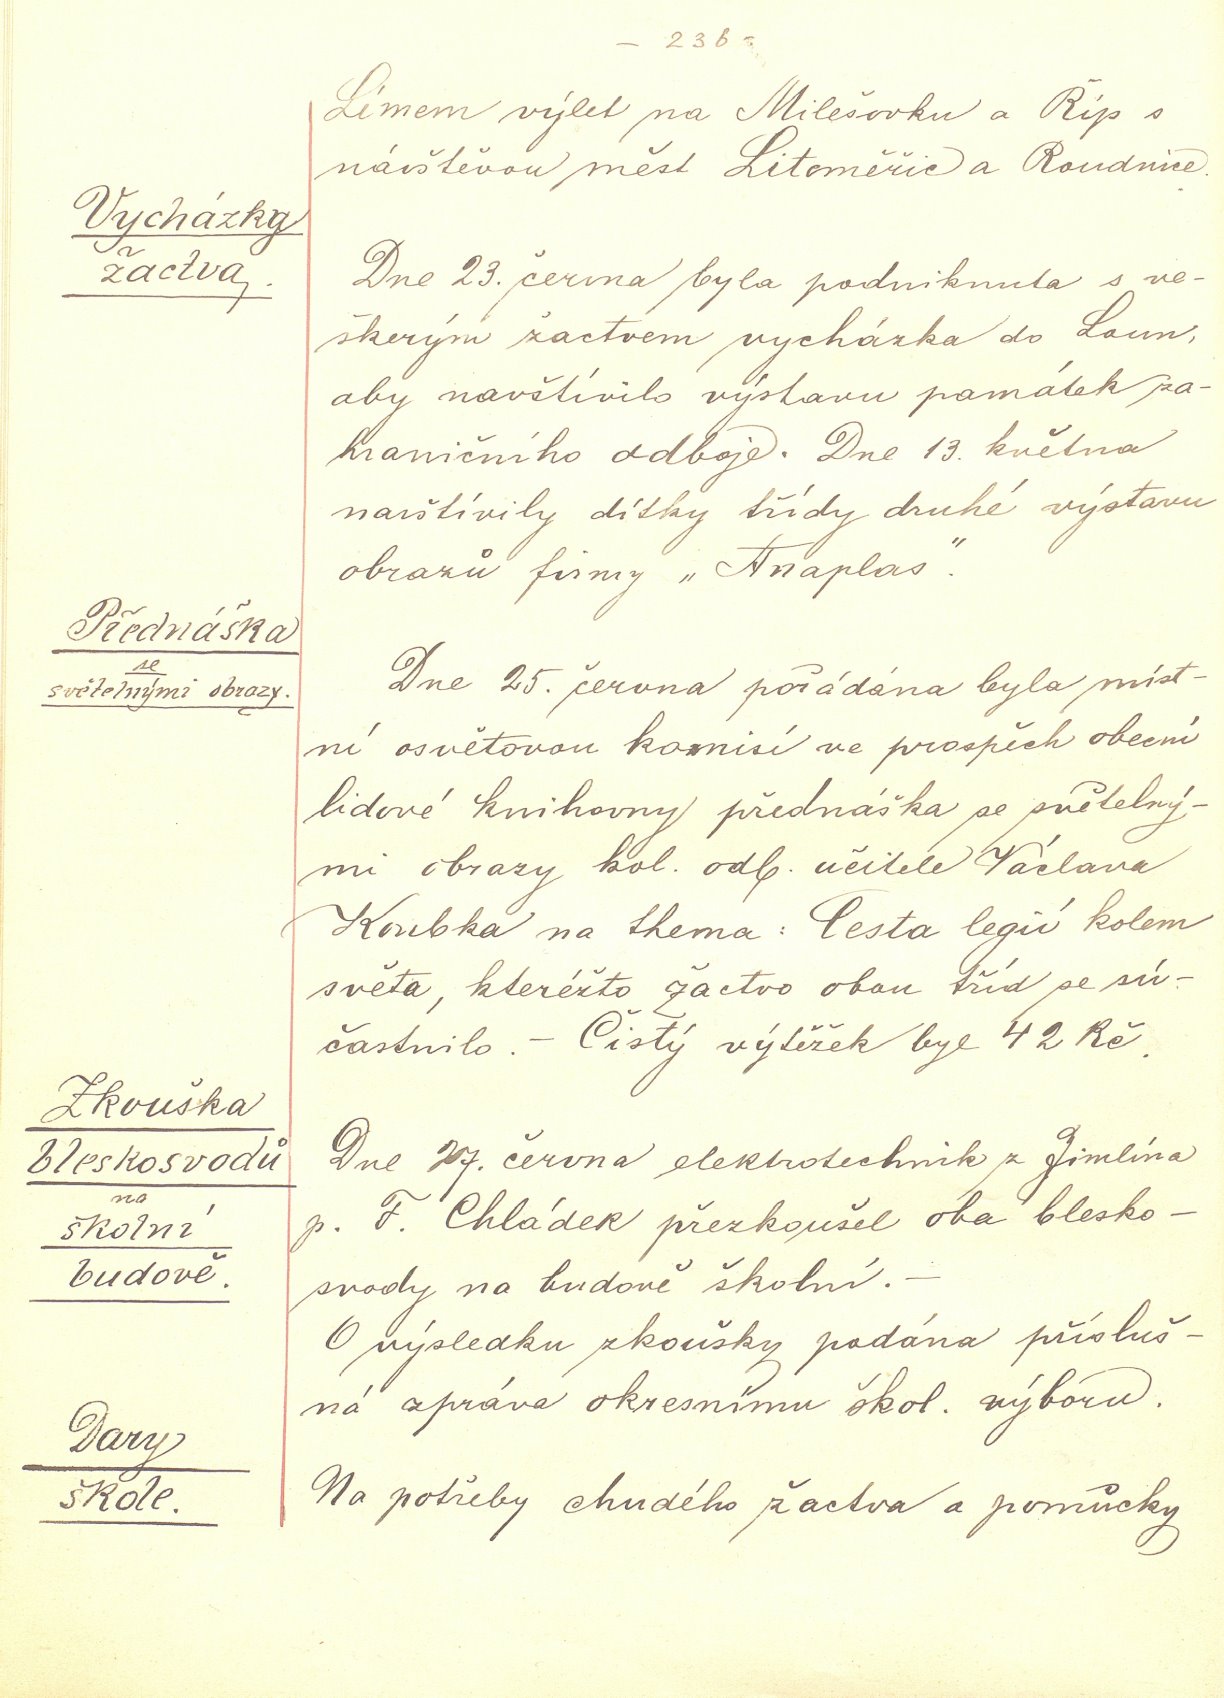 — 236 –
Límem výlet na Milešovku a Říp s
návštěvou měst Litoměřic a Roudnice.
Vycházky
žactva.
Dne 23. června byla podniknuta s ve-
škerým žactvem vycházka do Loun,
aby navštívilo výstavu památek za-
hraničního odboje. Dne 13. května
navštívily dítky třídy druhé výstavu
obrazů firmy „Anaplas“.
Přednáška
se
světelnými obrazy.
Dne 25. června pořádána byla míst-
ní osvětovou komisí ve prospěch obecní
lidové knihovny přednáška se světelný-
mi obrazy kol. odb. učitele Václava
Koubka na thema: Cesta legií kolem
světa, kteréžto žactvo obou tříd se sú-
častnilo. – Čistý výtěžek byl 42 Kč.
Zkouška
bleskosvodů
na
školní
budově.
Dne 27. června elektrotechnik z Jimlína
p. F. Chládek přezkoušel oba blesko-
svody na budově školní. –
O výsledku zkoušky podána přísluš-
ná zpráva okresnímu škol. výboru.
Dary
škole.
Na potřeby chudého žactva a pomůcky